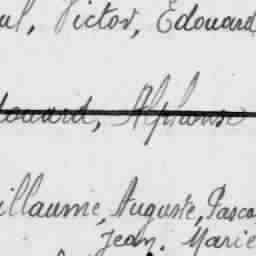 ul, Victor, Edouard
douard, Alphonse
illaume, Auguste, Pasca
Jean. Marie